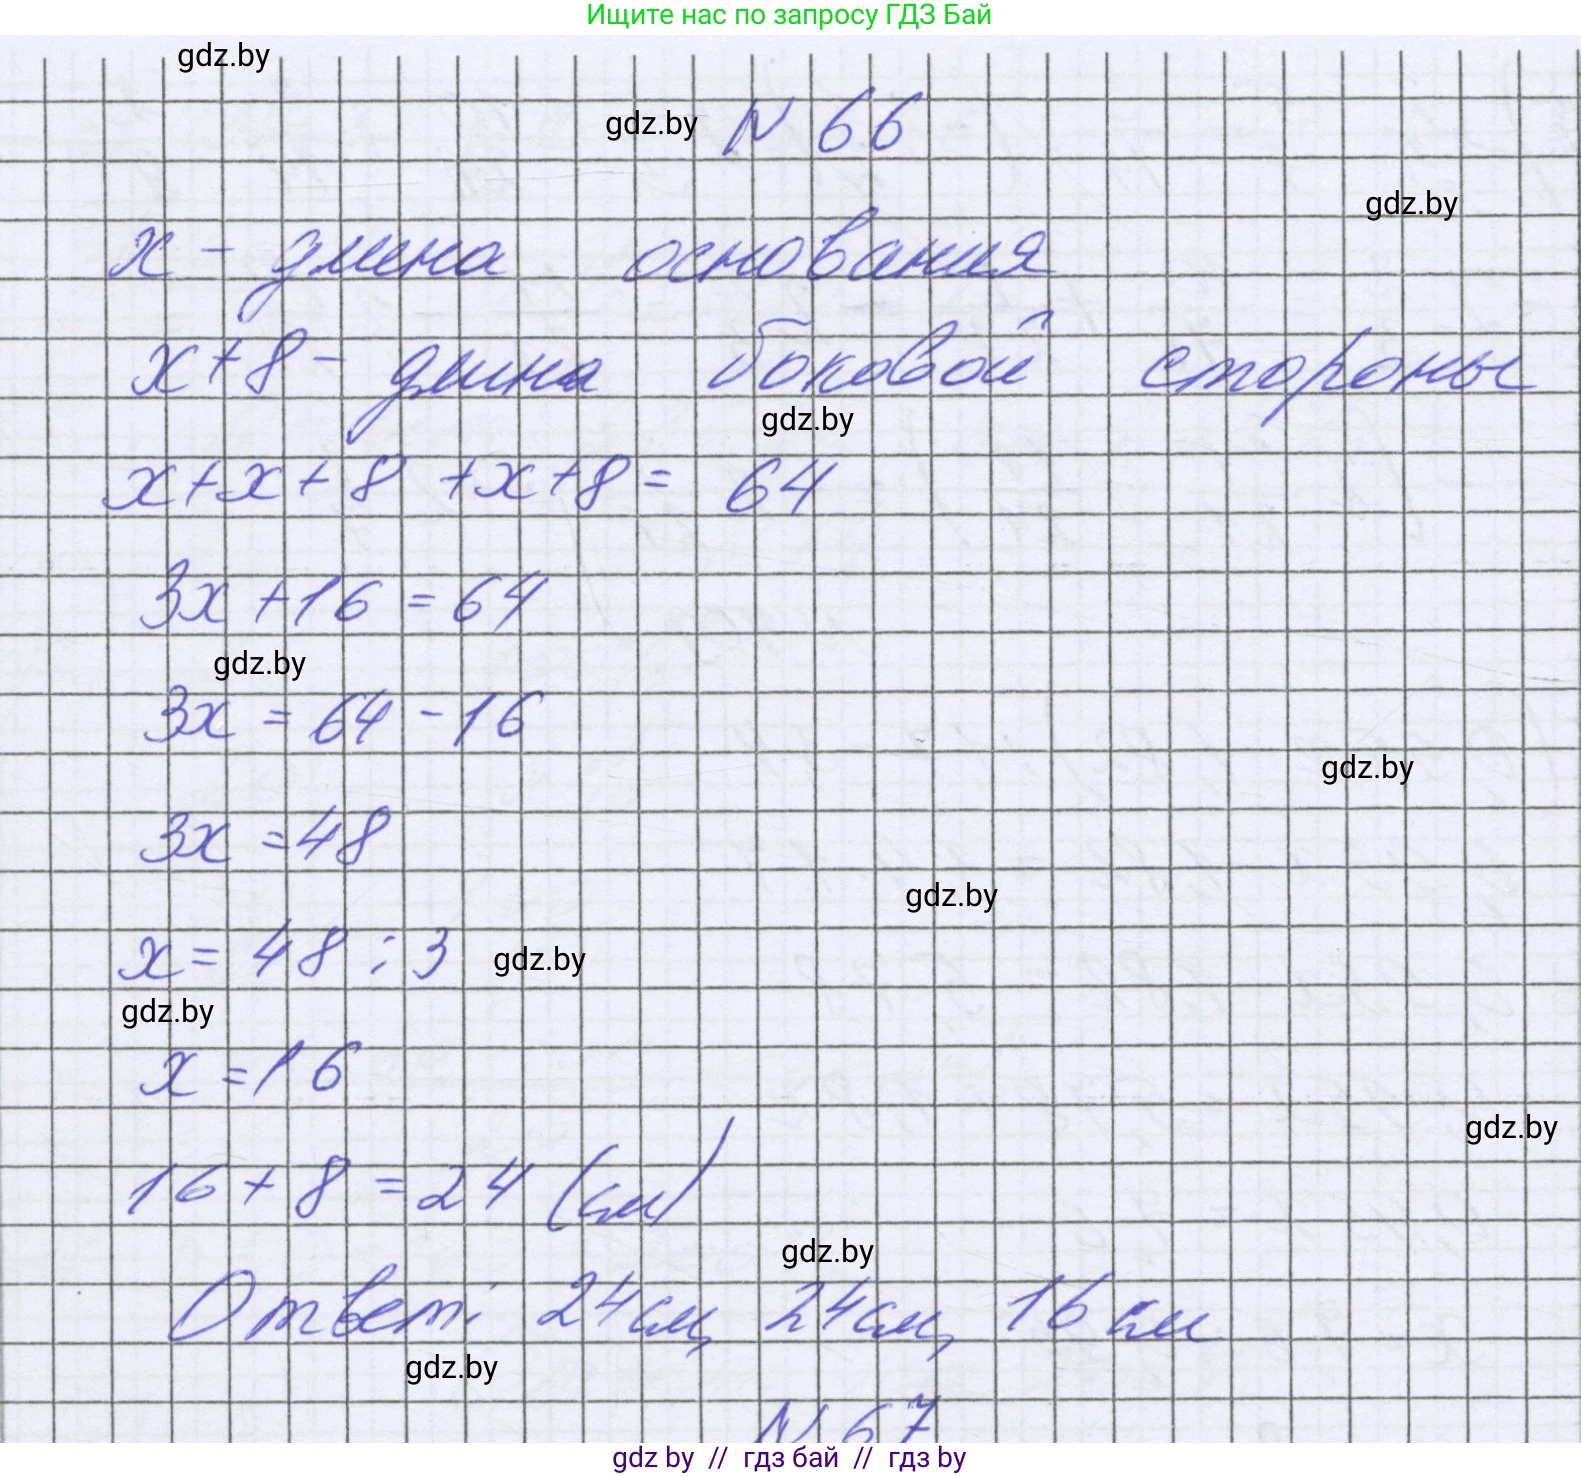 Ищите нас по запросу ГДЗ Бай
gdz.by
gdz.by
N 66
gdz.by
x - длина основания
x+8 - длина боковой стороны
gdz.by
x+x+8+x+8= 64
3x+16=64
gdz.by
3x=64-16
gdz.by
3x=48
gdz.by
x=48:3
gdz.by
gdz.by
x=16
gdz.by
16+8=24 (см)
gdz.by
Ответ: 24см, 24см, 16см
gdz.by
N 67
gdz by // гдз бай // гдз by